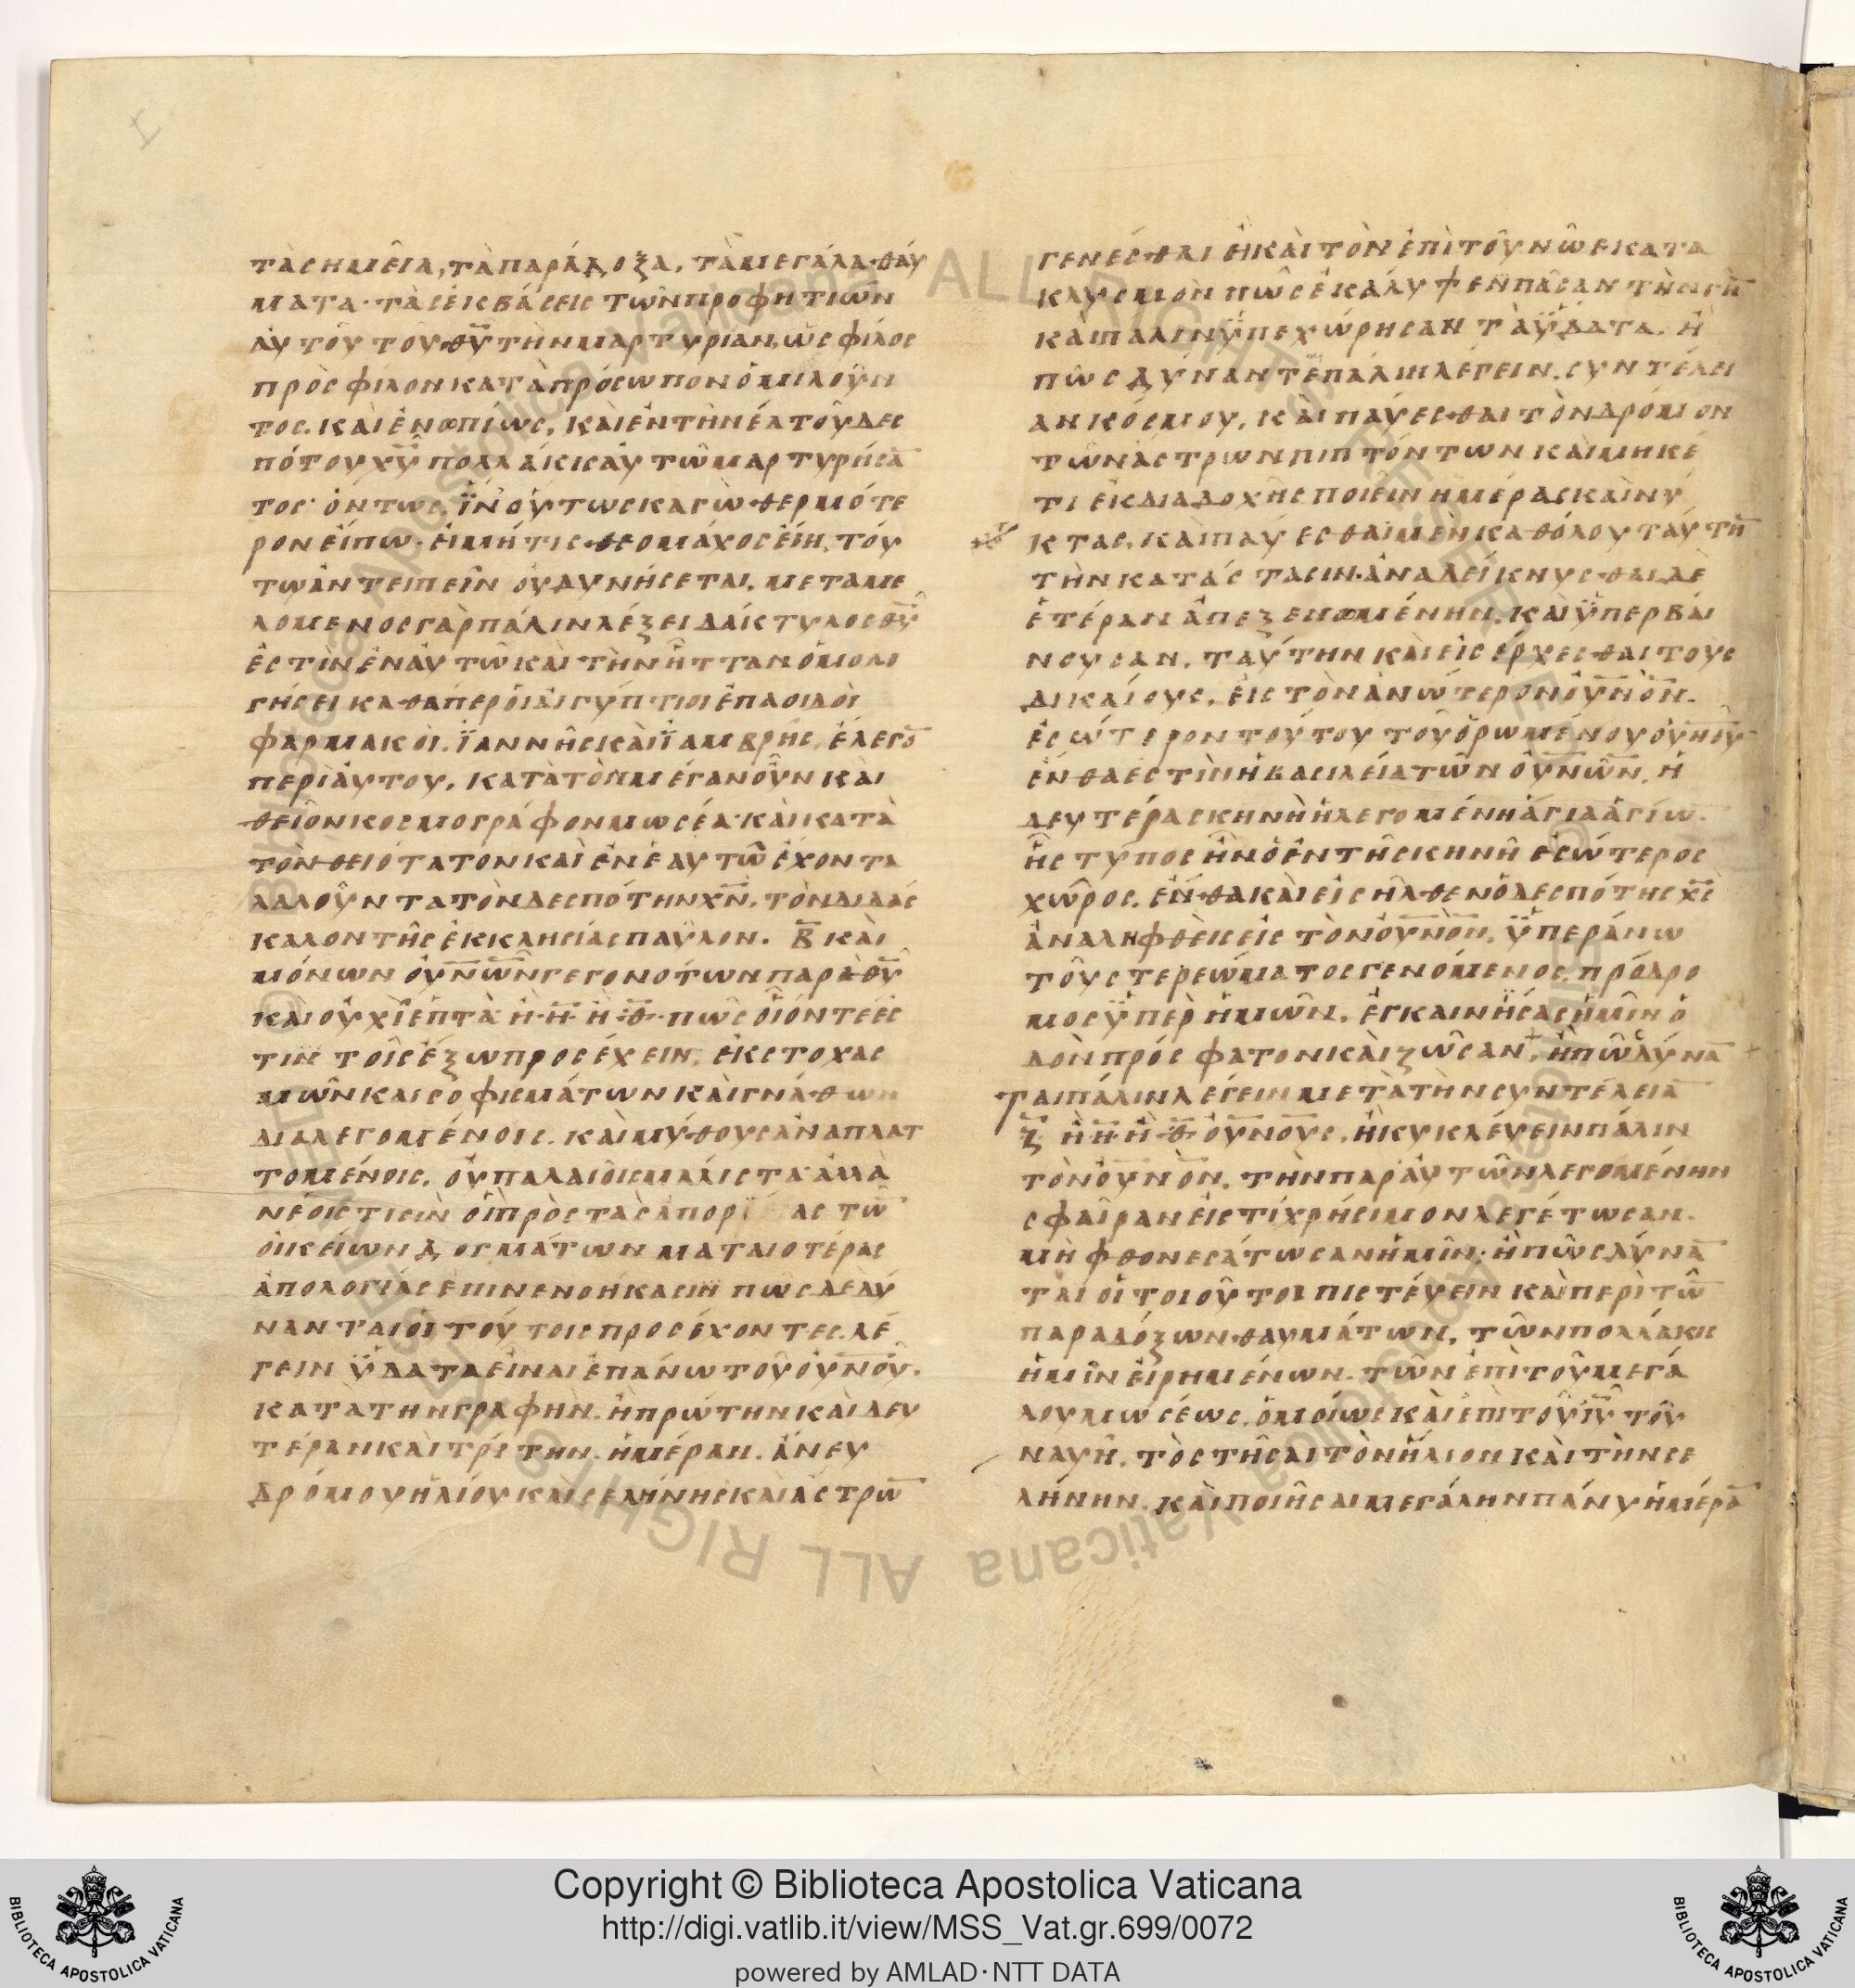 τὰ σημεῖα, τὰ παράδοξα. τὰ μεγάλα θαύ
ματα· τὰς ἐκβάσεις τῶν προφητιῶν
αὐτοῦ τοῦ θ̅υ̅ τὴν μαρτυρίαν, ὡς φίλος
πρὸς φίλον κατὰ πρόσωπον ὁμιλοῦν
τος. καὶ ἐνωπίως, καὶ ἐν τῇ νέα τοῦ δεσ
πότου χ̅υ̅ πολλάκις αὐτῶ μαρτυρήσα̅
τος· ὄντως, ἵν' οὕτως κἀγὼ θερμότε
ρον εἴπω. εἰ μή τις θεομάχος εἴη, τού
τω ἀντειπεῖν οὐ δυνήσεται. μεταμε
λόμενος γὰρ πάλιν λέξει δάκτυλος θ̅υ̅
ἐστὶν ἐν αὐτῶ καὶ τὴν ἧτταν ὁμολο
γήσει καθάπερ οἱ αἰγύπτιοι ἐπαοιδοὶ
φαρμακοὶ. ϊαννῆς καὶ ϊαμβρῆς, ἔλεγο̅
περὶ αὐτου. κατὰ τὸν μέγαν οὖν καὶ
θεῖον κοσμογράφον μωσέα· καὶ κατὰ
τὸν θειότατον καὶ ἐν ἑαυτῶ ἔχοντα
λαλοῦντα τὸν δεσπότην χ̅ν̅. τὸν διδάσ
καλον τῆς ἐκκλησίας παῦλον. β̅ καὶ
μόνων ο̅υ̅ν̅ω̅ν̅ γεγονότων παρὰ θ̅υ̅
καὶ οὐχὶ ἑπτὰ ἢ η̅ ἢ θ̅ πῶς οἷόν τε ἐσ
τιν τοῖς ἔξω προσέχειν, ἐκ στοχασ
μῶν καὶ σοφισμάτων καὶ γνάθων
διαλεγομένοις. καὶ μύθους ἀναπλατ
τομένοις. οὐ παλαιοῖς μάλιστα· ἀλλὰ
νέοις τισὶν οἳ πρὸς τὰς ἀπορίας τῶ̅
οἰκείων δογμάτων ματαιοτέρας
ἀπολογίας ἐπινενοήκασιν πῶς δὲ δύ
νανται οἱ τούτοις προσέχοντες. λέ
γειν ὕδατα εἶναι ἐπάνω τοῦ ο̅υ̅ν̅ο̅υ̅.
κατὰ τὴν γραφὴν. ἢ πρώτην καὶ δευ
τέραν καὶ τρίτην. ἡμέραν. ἄνευ
δρόμου ἡλίου καὶ σελήνης καὶ ἄστρω̅
γενέσθαι ἢ καὶ τὸν ἐπὶ τοῦ νῶε κατα
κλυσμὸν πῶς ἐκάλυψεν πᾶσαν τὴν γῆ̅
καὶ πάλιν ὑπεχώρησαν τὰ ὕδατα. ἢ
πῶς δύναντε πάλιν λέγειν. συντέλει
αν κόσμου. καὶ παύεσθαι τὸν δρόμον
τῶν ἄστρων πιπτόντων καὶ μηκέ
τι ἐκ διαδοχῆς ποιεῖν ἡμέρας καὶ νύ
κτας. καὶ παύεσθαι μὲν καθόλου ταύτη̅
τὴν κατάστασιν. ἀναδείκνυσθαι δὲ
ἑτέραν ἀπεξενωμένην. καὶ ὑπερβαί
νουσαν. ταύτην καὶ εἰσέρχεσθαι τοὺς
δικαίους. εἰς τὸν ἀνώτερον ο̅υ̅ν̅ο̅ν̅.
ἐσώτερον τούτου τοῦ ὁρωμένου ο̅υ̅ν̅ο̅υ̅
ἔνθα ἐστὶν ἡ βασιλεία τῶν ο̅υ̅ν̅ω̅ν̅. ἡ
δευτέρα σκηνὴ ἡ λεγομένη ἅγια ἁγίω̅.
ἧς τύπος ἦν ὁ ἐν τῇ σκηνῇ ἐσώτερος
χῶρος. ἔνθα καὶ εἰσῆλθεν ὁ δεσπότης χ̅ς̅
ἀναληφθεὶς εἰς τὸν ο̅υ̅ν̅ο̅ν̅. ὑπεράνω
τοῦ στερεώματος γενόμενος, πρόδρο
μος ὑπὲρ ἡμῶν. ἐγκαινήσας ἡμῖν ὁ
δὸν πρόσφατον καὶ ζῶσαν, ἢ πῶς δύνα̅
ται πάλιν λέγειν μετὰ τὴν συντέλεια̅
ζ̅ ἢ η̅ ἢ θ̅ ο̅υ̅ν̅ο̅υ̅ς̅, ἢ κυκλεύειν πάλιν
τὸν ο̅υ̅ν̅ο̅ν̅. τὴν παρ' αὐτῶν λεγομένην
σφαῖραν εἰς τί χρήσιμον λεγέτωσαν.
μὴ φθονεσάτωσαν ἡμῖν. ἢ πῶς δύνα̅
ται οἱ τοιοῦτοι πιστέυειν καὶ περὶ τῶ̅
παραδόξων θαυμάτων, τῶν πολλάκις
ἡμῖν εἰρημένων. τῶν ἐπὶ τοῦ μεγά
λου μωσέως. ὁμοίως καὶ ἐπὶ τοῦ ι̅υ̅ τοῦ
ναυῆ. τὸ στῆσαι τὸν ἥλιον καὶ τὴν σε
λήνην. καὶ ποιῆσαι μεγάλην πάνυ ἡμέρα̅
Copyright © Biblioteca Apostolica Vaticana
http://digi.vatlib.it/view/MSS_Vat.gr.699/0072
powered by AMLAD·NTT DATA
BIBLIOTECA APOSTOLICA VATICANA
BIBLIOTECA APOSTOLICA VATICANA